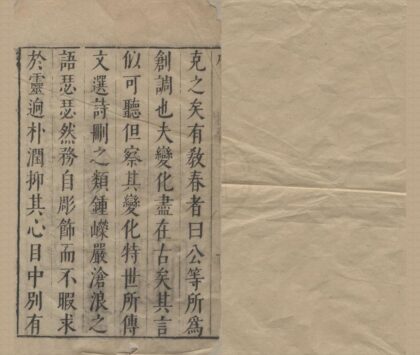 克之矣有敎春者曰公等所爲
創調也夫變化盡在古矣其言
似可聽但察其變化特世所傳
文選詩刪之類鍾嶸嚴滄浪之
語瑟瑟然務自彫飾而不暇求
於靈逈朴潤抑其心目中別有